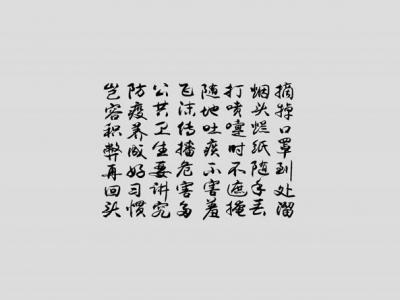 摘掉口罩到处溜
烟头烂纸随手丢
打喷嚏时不遮掩
随地吐痰不害羞
飞沫传播危害多
公共卫生要讲究
防疫养成好习惯
岂容积弊再回头